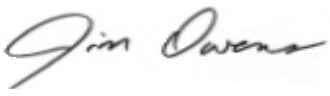 Jim Owens